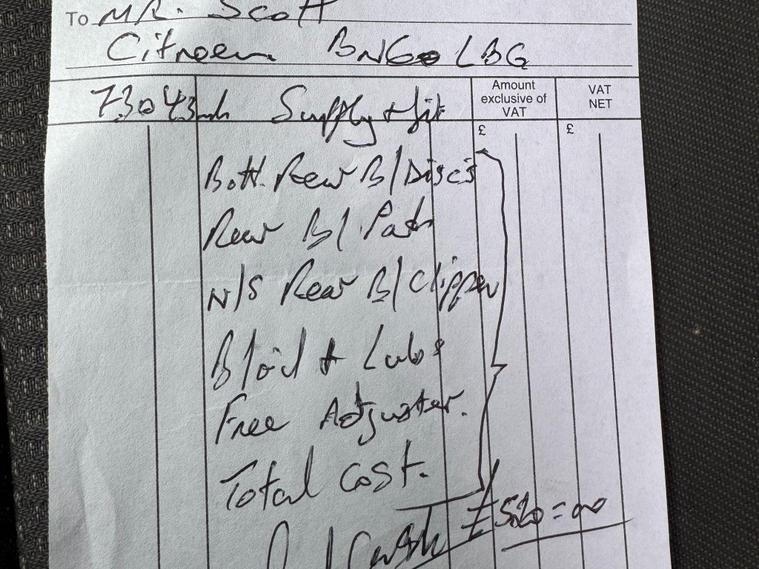 To MR. Scott
Citroen BN60 LBG
73043mh Supply + fit
Amount exclusive of VAT £
VAT NET £
Both Rear B/Discs
Rear B/. Pads
N/S Rear B/Clipper
B/oil + Lube
Free Adjuster.
Total Cost.
£520=00
Cash